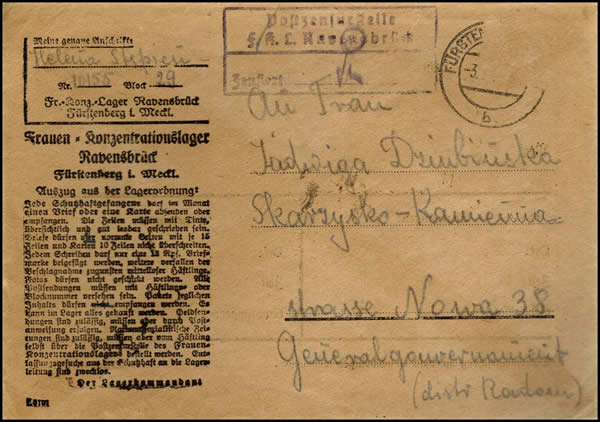 Meine genaue Anschrift:
Helena
Nr. 10155 Block 29
Fr.-Konz.-Lager Ravensbrück
Fürstenberg i. Meckl.
Frauen-Konzentrationslager
Ravensbrück
Fürstenberg i. Meckl.
Auszug aus der Lagerordnung:
Jede Schutzhaftgefangene darf im Monat
einen Brief oder eine Karte absenden oder
empfangen. Die Zeilen müssen mit Tinte,
übersichtlich und gut lesbar geschrieben sein.
Briefe dürfen vier normale Seiten mit je 15
Zeilen und Karten 10 Zeilen nicht überschreiten.
Jedem Schreiben darf nur eine 12 Rpf. Brief-
marke beigefügt werden, weitere verfallen der
Beschlagnahme zugunsten mittelloser Häftlinge.
Fotos dürfen nicht geschickt werden. Alle
Postsendungen müssen mit Häftlings- und
Blocknummer versehen sein. Pakete jeglichen
Inhalts dürfen nicht empfangen werden. Es
kann im Lager alles gekauft werden. Geldsen-
dungen sind zulässig, müssen aber durch Post-
anweisung erfolgen. Nationalsozialistische Zei-
tungen sind zulässig, müssen aber vom Häftling
selbst über die Postzensurstelle des Frauen-
Konzentrationslagers bestellt werden. Ent-
lassungsgesuche aus der Schutzhaft an die Lager-
leitung sind zwecklos.
Der Lagerkommandant
Postzensurstelle
F. K. L. Ravensbrück
FÜRSTEN
3.
b
An Frau
Jadwiga Dziubińska
Skarzysko-Kamienna
strasse Nowa 38
Generalgouvernament
(distr Radom)